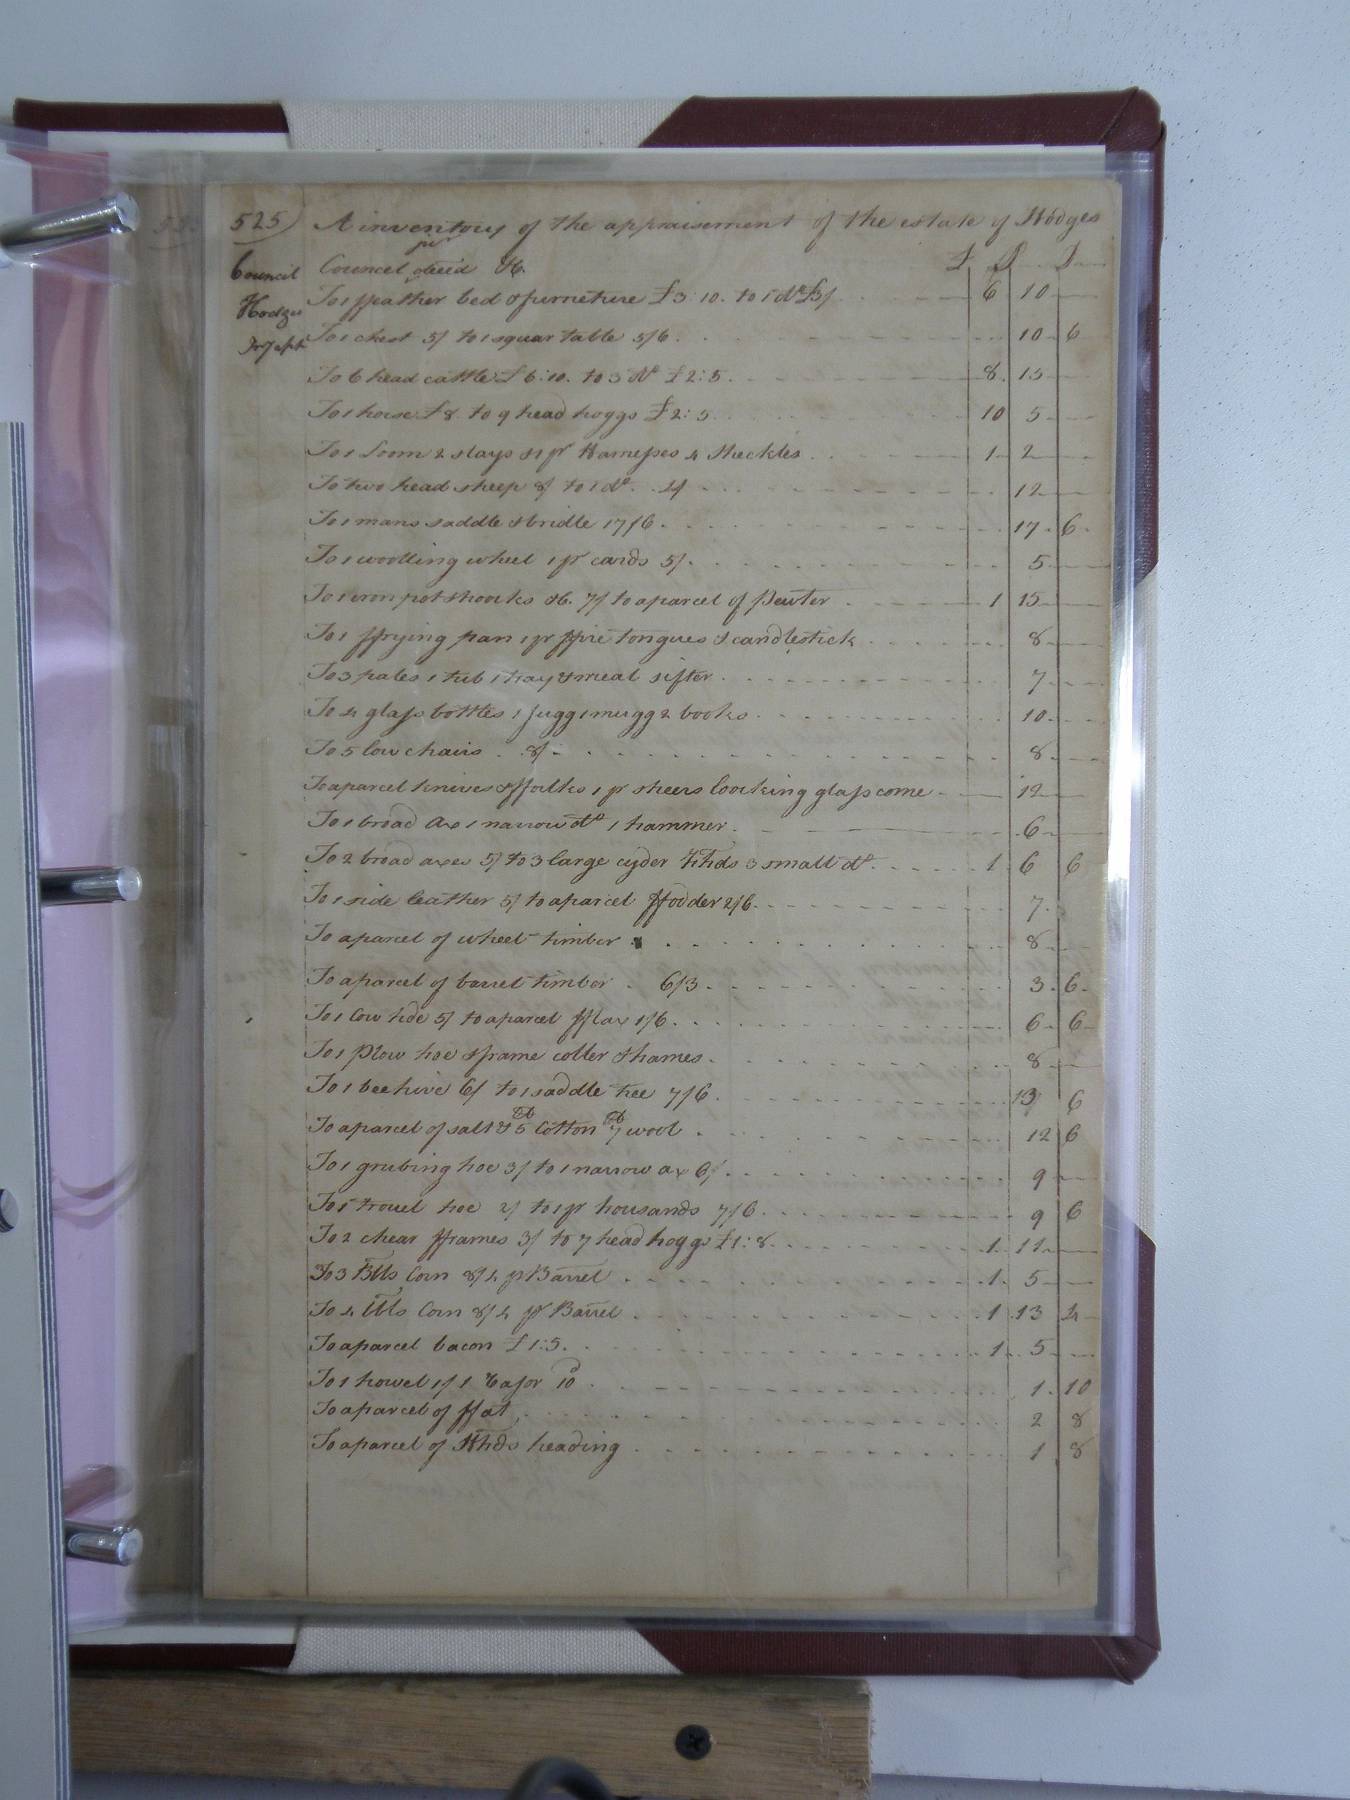 525) A inventory of the appraisement of the estate of Hodges
Council Councel deced &c. £ S D
Hodges To 1 ffeather bed & furneture £3:10. to 1 do £3/ 6 10
To 1 chest 5/ to 1 squar table 5/6 10 6
To 6 head cattle £6:10. to 3 do £2:5 8 15
To 1 horse £8 to 9 head hoggs £2:5 10 5
To 1 Loom 2 slays & 1 pr Harnesses 4 Sheckles 1 2
To two head sheep 8/ to 1 do 4/ 12
To 1 mans saddle & bridle 17/6 17 6
To 1 woolling wheel 1 pr cards 5/ 5
To 1 iron pot & hooks &c. 7/ to a parcel of Pewter 1 15
To 1 ffrying pan 1 pr ffire tongues & candlestick 8
To 3 pales 1 tub 1 tray & meal sifter 7
To 4 glass bottles 1 jugg 1 mugg 2 books 10
To 5 low chairs 8/ 8
To a parcel knives & ffolks 1 pr sheers loocking glass come 12
To 1 broad Ax 1 narrow do 1 hammer 6
To 2 broad axes 5/ to 3 large cyder hhds 3 small do 1 6 6
To 1 side leather 5/ to a parcel ffodder 2/6 7
To a parcel of wheel timber 8
To a parcel of barrel timber 6/3 3 6
To 1 Cow hide 5/ to a parcel fflax 1/6 6 6
To 1 Plow hoe & frame coller & hames 8
To 1 bee hive 6/ to 1 saddle tree 7/6 13 6
To a parcel of salt & 5 lb Cotton 7 lb wool 12 6
To 1 grubing hoe 3/ to 1 narrow ax 6/ 9
To 1 trouel hoe 2/ to 1 pr housands 7/6 9 6
To 2 chear fframes 3/ to 7 head hoggs £1:8 1 11
To 3 Blls Corn 8/4 pr Barrel 1 5
To 4 bbls Corn 8/4 pr Barrel 1 13 4
To a parcel bacon £1:5. 1 5
To 1 howel 1/ 1 Rasor 10d 1 10
To a parcel of ffat 2 8
To a parcel of Hhds heading 1 8